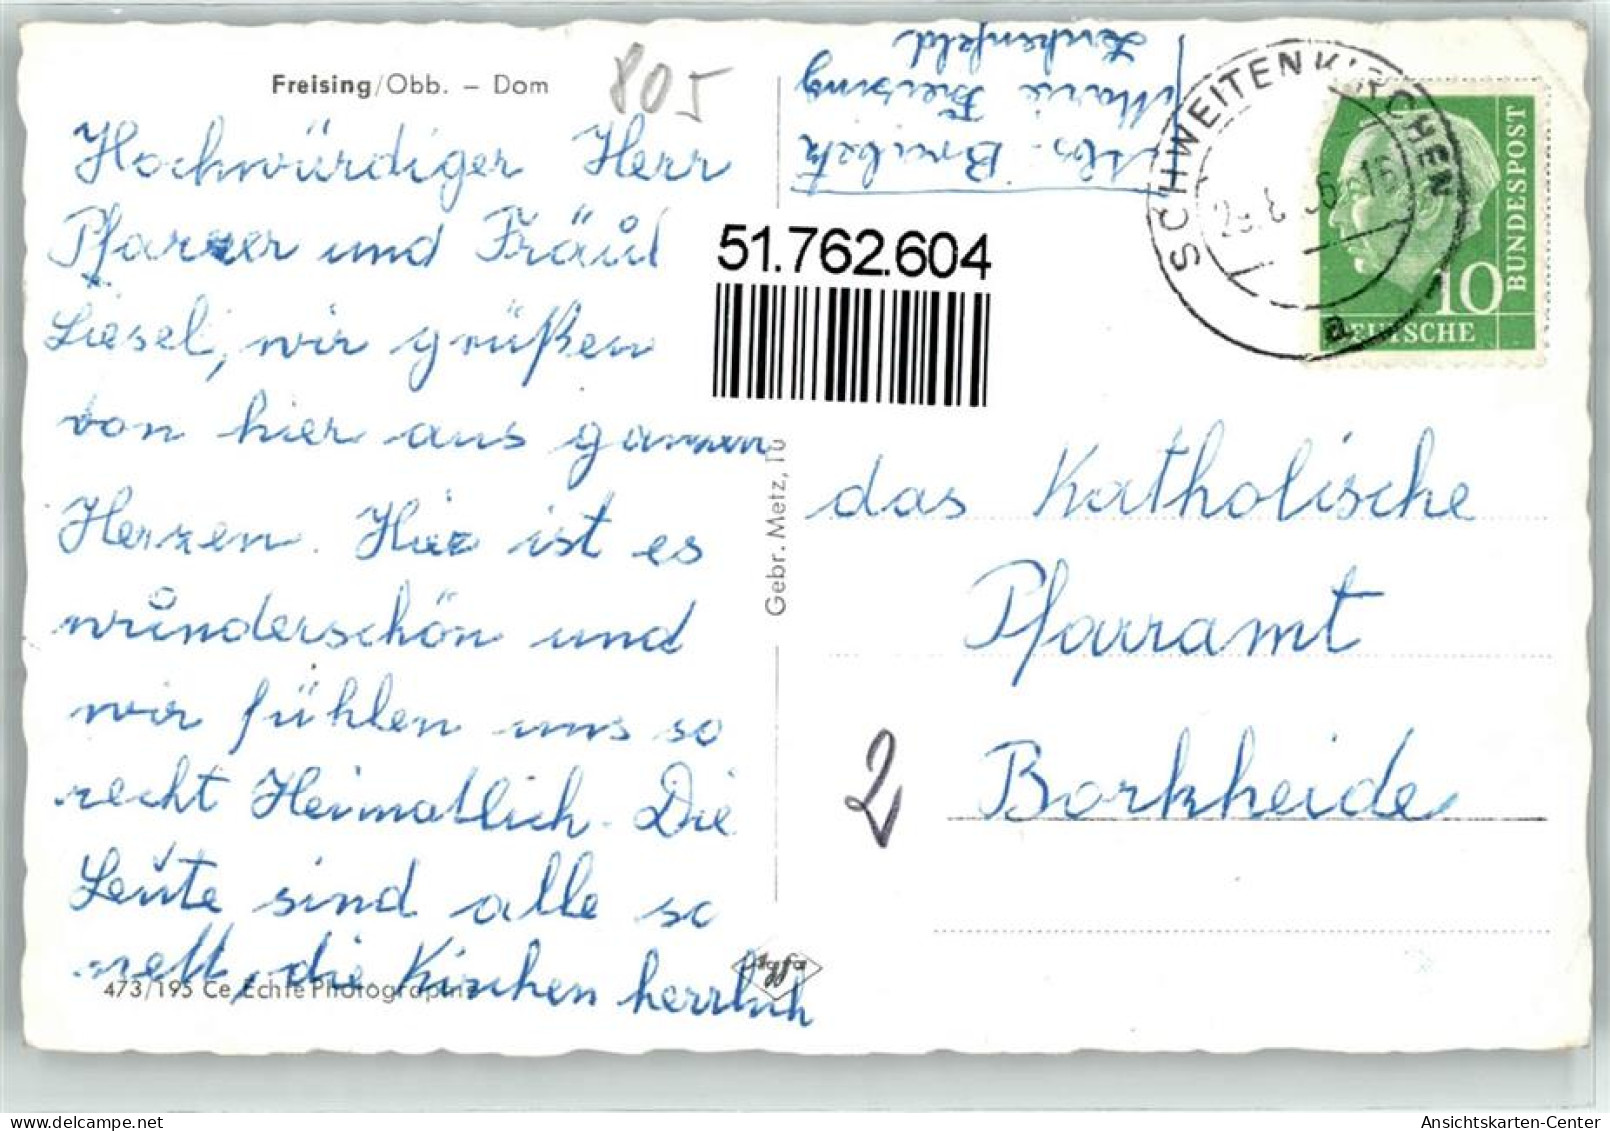 Freising/Obb. – Dom
805
Hochwürdiger Herr
Pfarrer und Fräul
Liesel, wir grüßen
von hier aus ganzen
Herzen. Hier ist es
wunderschön und
wir fühlen uns so
recht Heimatlich. Die
Leute sind alle so
nett, die Kirchen herrlich
473/195 Ce Echte Photographie
Abs.
Maria Freising
51.762.604
Gebr. Metz,
Agfa
SCHWEITENKIRCHEN
a
10
DEUTSCHE
BUNDESPOST
das Katholische
Pfarramt
Borkheide
2
Ansichtskarten-Center